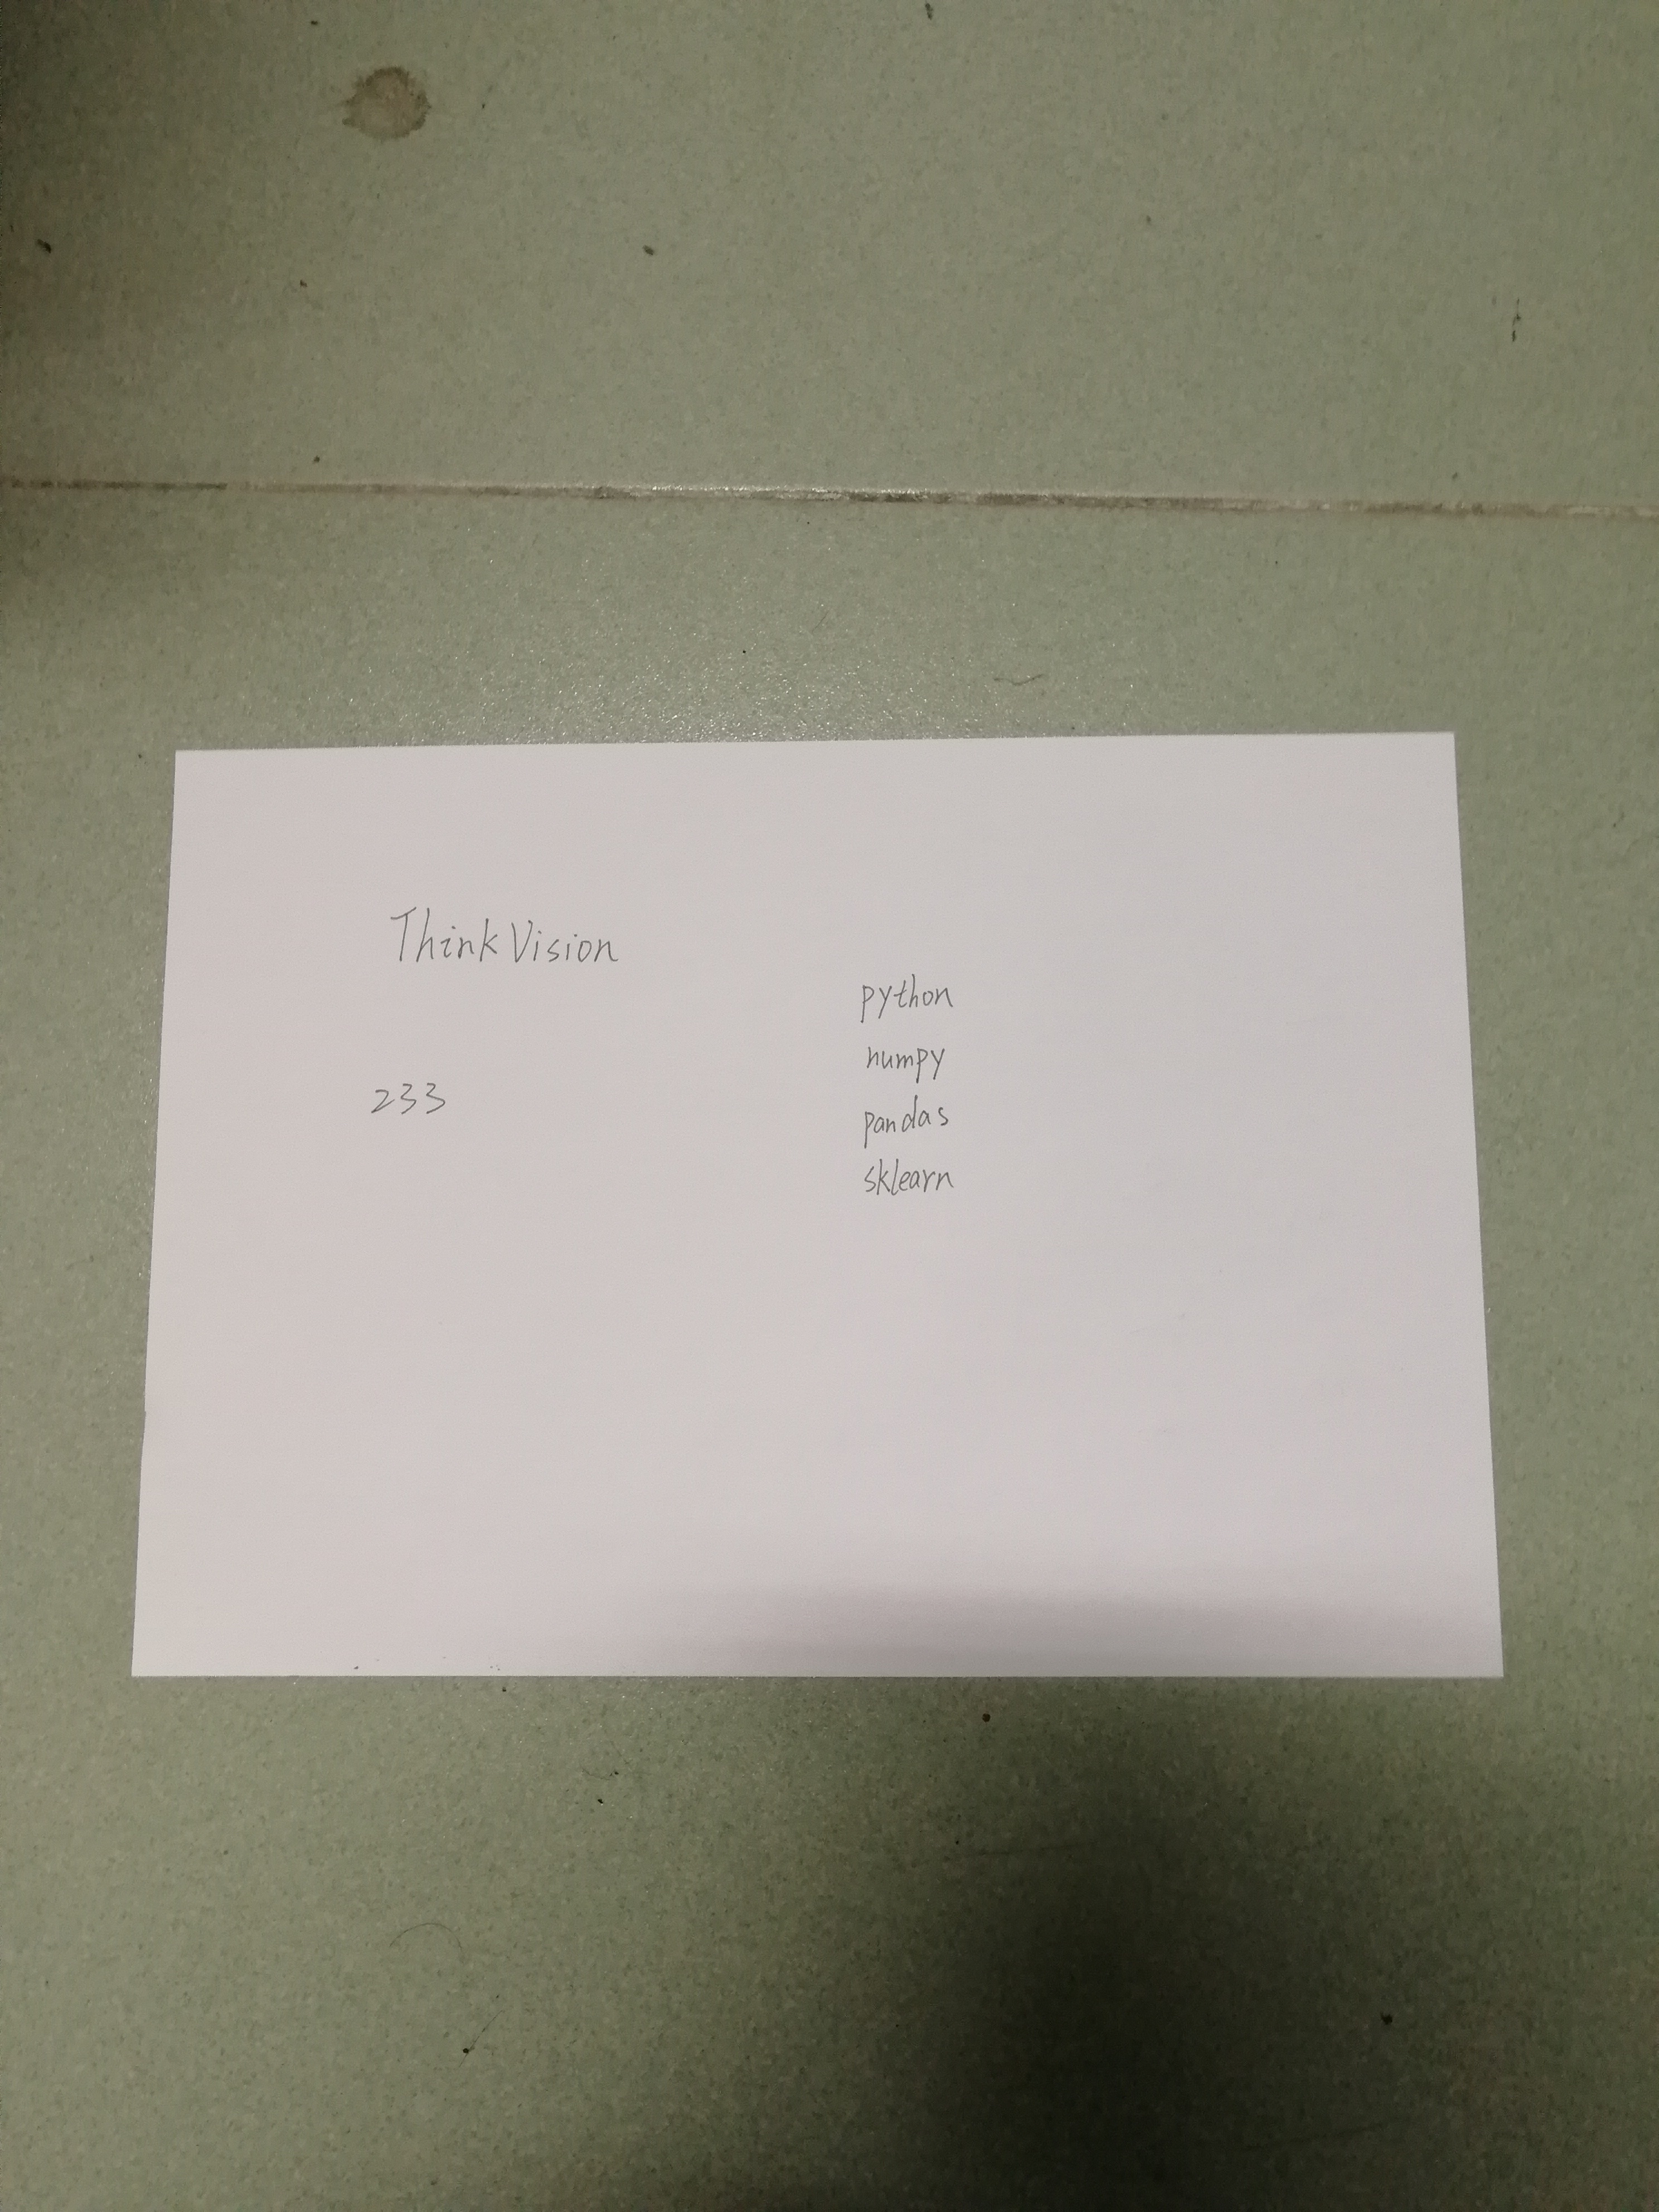 Think Vision
233
python
numpy
pandas
sklearn